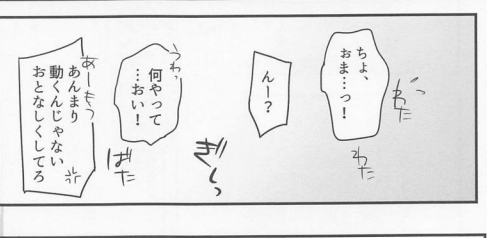 ちょ、
おま…っ！
わた
わた
んー？
ぎしっ
うわっ
何やって
…おい！
ばた
あーもう
あんまり
動くんじゃない
おとなしくしてろ